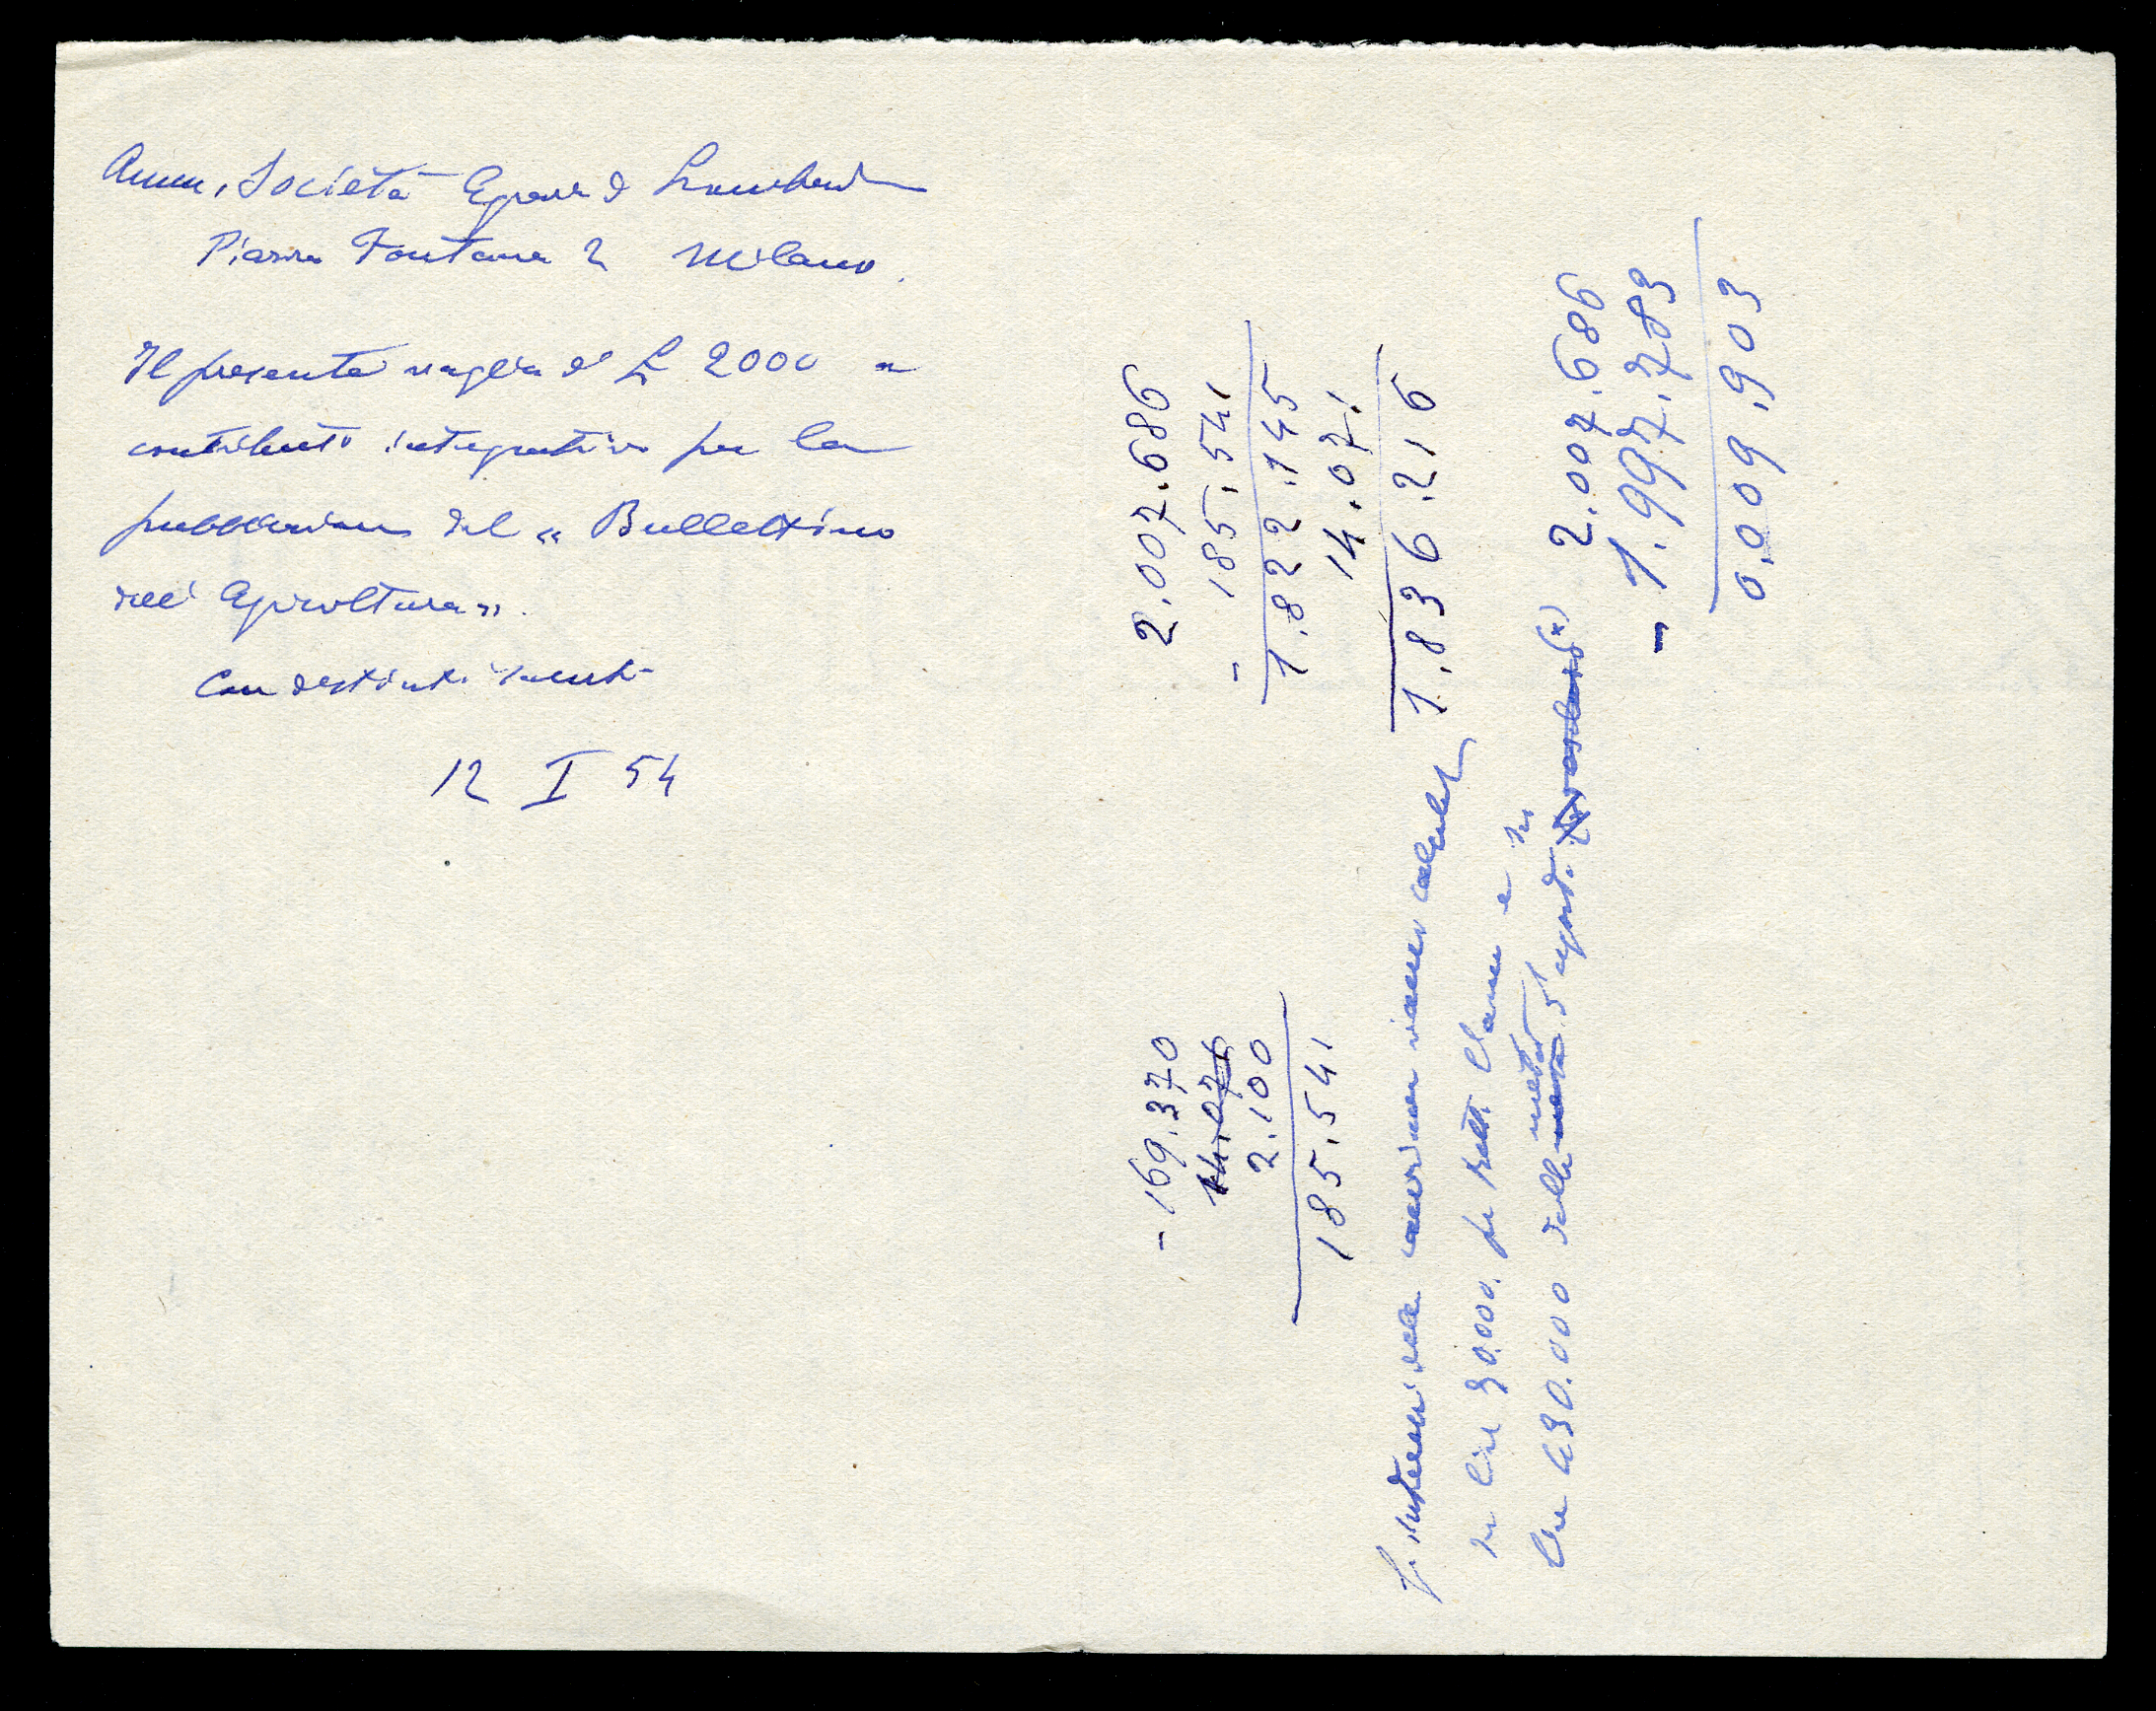 Amm. Società Agraria di Lombardia
Piazza Fontana 2 Milano.
Il presente vaglia di L 2000 a
contributo integrativo per la
pubblicazione del "Bullettino
dell'Agricoltura".
Con distinti saluti
12 I 54
2.007.686
- 185.541
1.822.145
14.071
1.836.216
- 169.370
14.071
2.100
185.541
in lire 30.000. per e in
lire 430.000 della metà
2.007.686
- 1.997.783
0.009.903